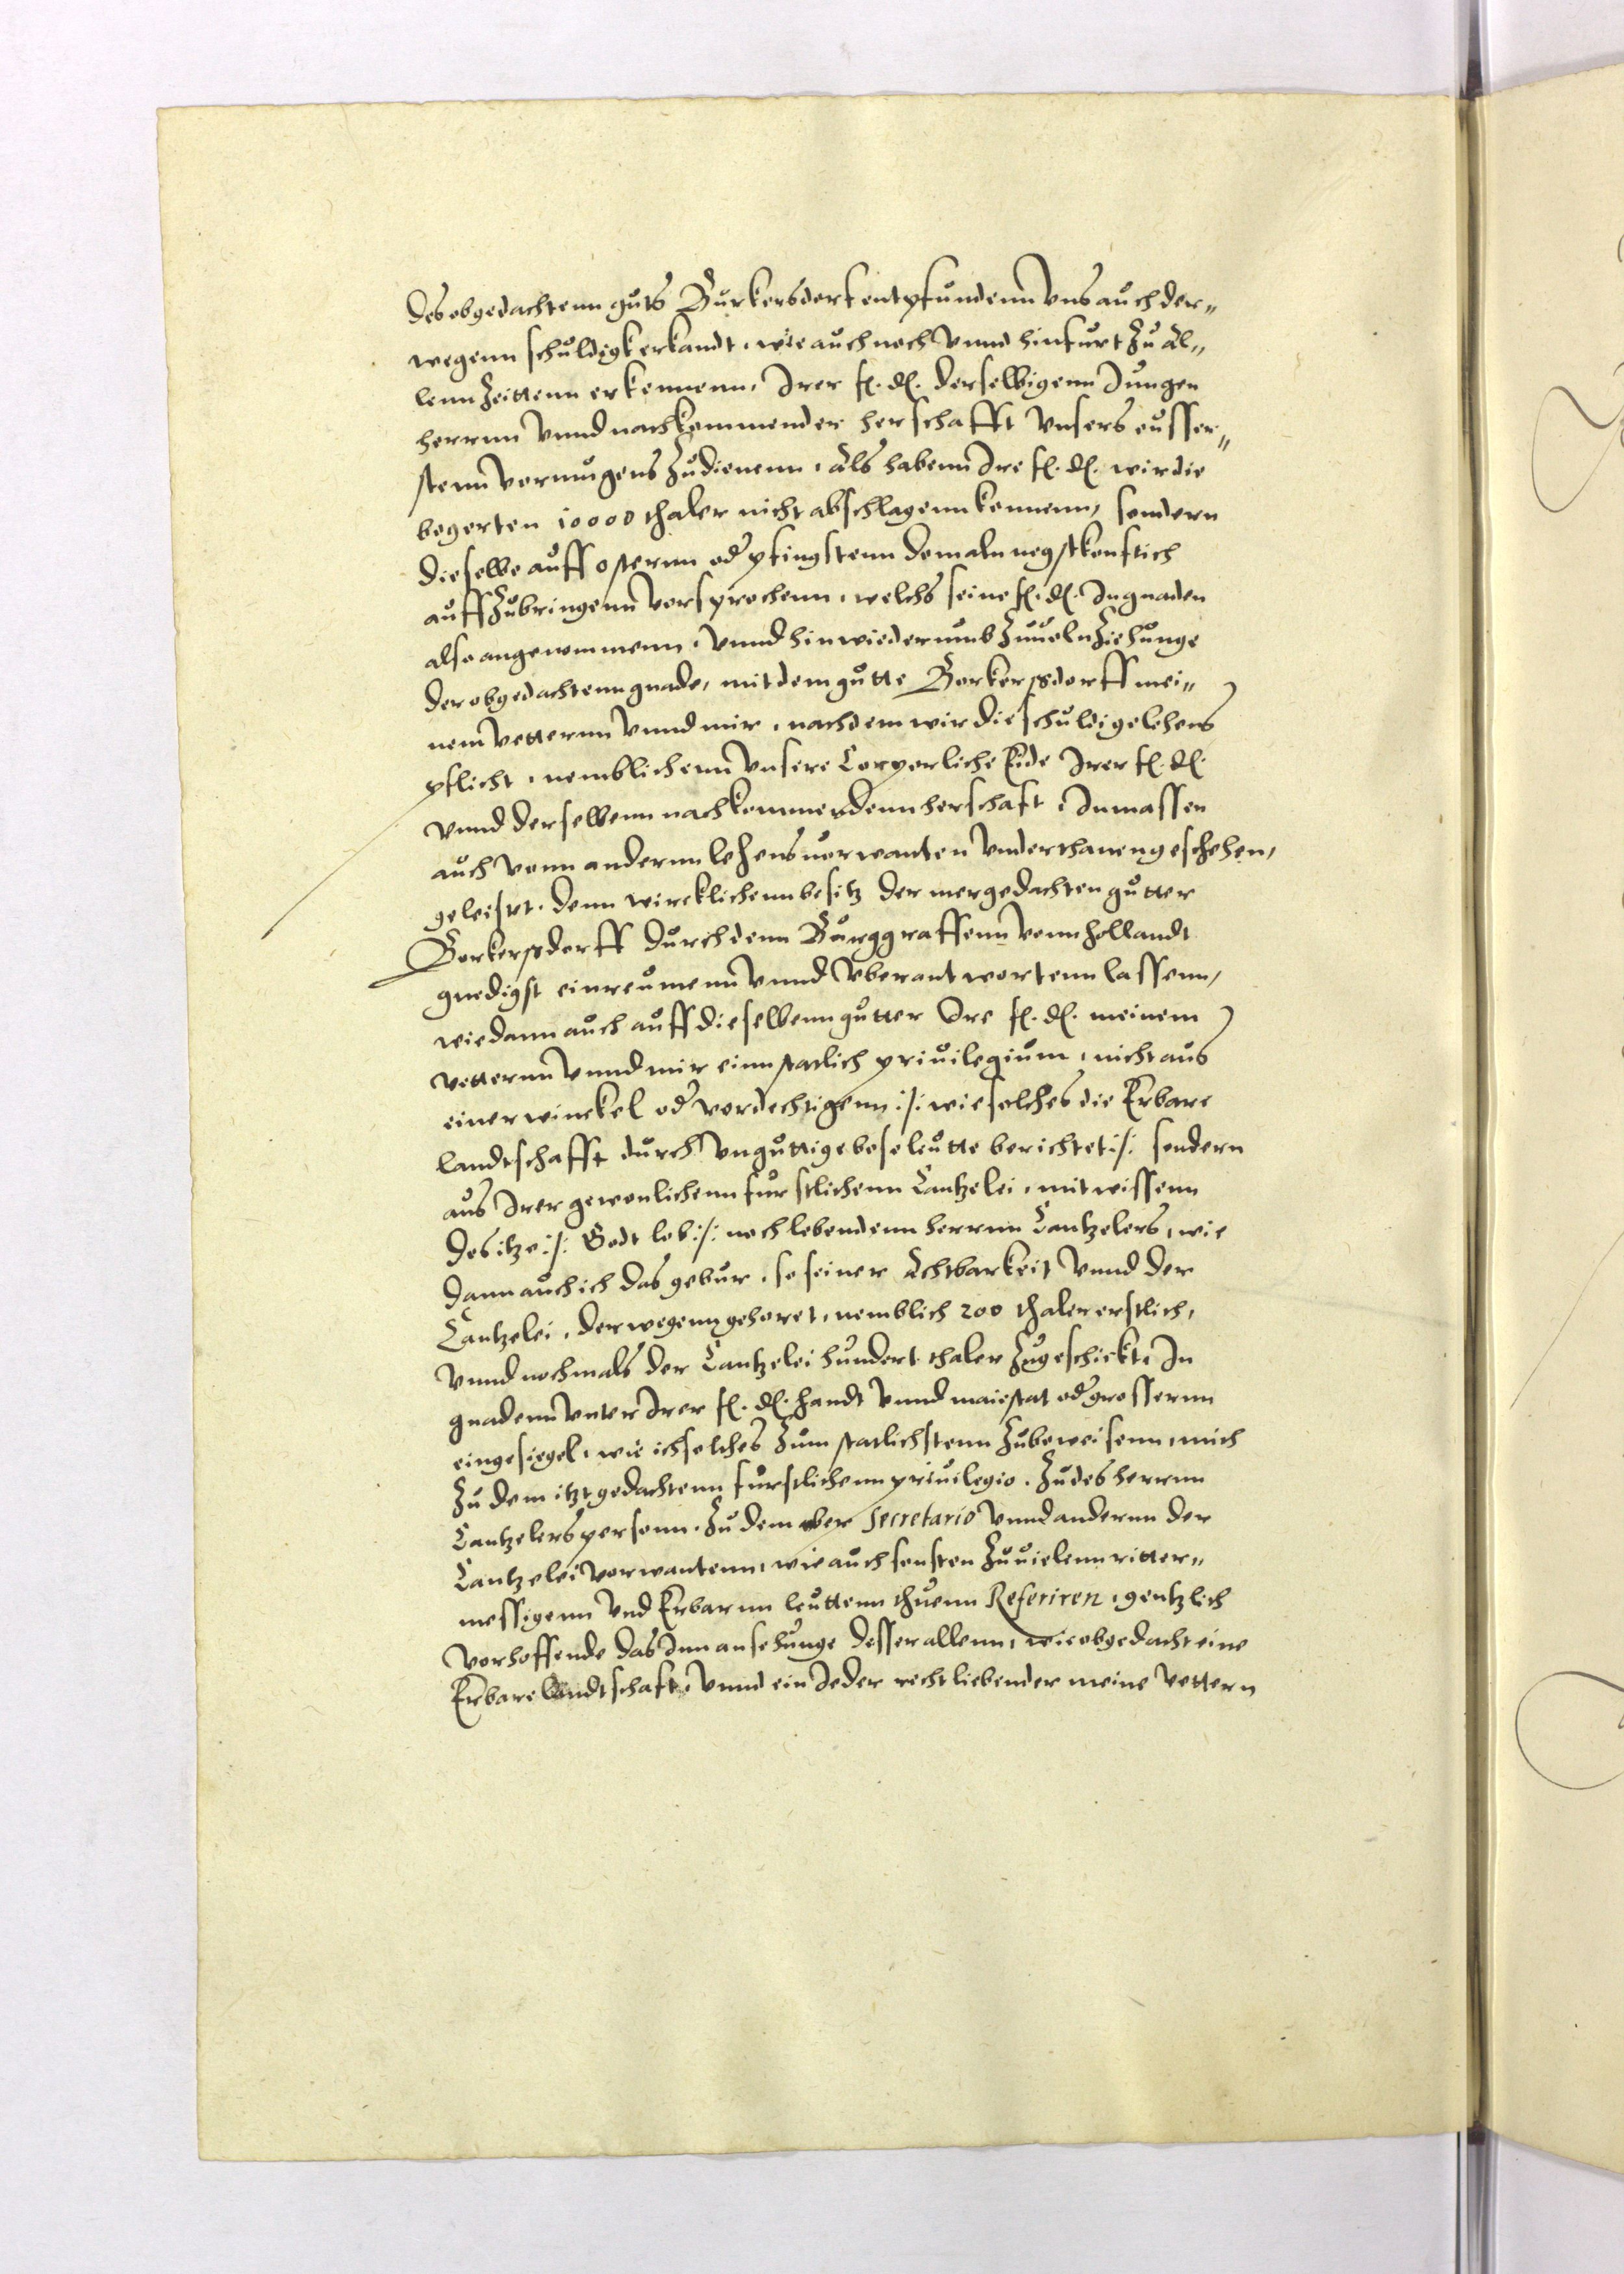 des obgedachtenn guts Burkersdorf entpfundenn Vns auch der„
wegenn schuldigk erkandt, wie auch noch Vnnd hinfurt Zu al„
lenn Zeittenn erkennenn, Irer f. d. derselbigenn Jungen
herrnn Vnnd nachkommender herschafft Vnsers eusser„
stenn Vermugens Zudienenn, Als habenn Ire f. d. wir die
begerten 10000 thaler nicht abschlagenn kennenn, sondern
dieselbe auff osternn oder pfingstenn domaln negstkonftich
auffzubringenn Versprochenn, welchs seine f. d. In gnaden
also angenommenn, Vnnd hinwiederumb Zuuolnziehunge
der obgedachtenn gnade, mit dem gutte Borkersdorff mei„
nem Vetternn Vnnd mir, nachdem wir die schuldige lehens
pflicht, nemblichenn Vnsere Corporliche Eide Irer f. d.
Vnnd derselbenn nachkommendenn herschaft, Inmassen
auch vonn andernn lehensuorwanten Vnderthanen geschehen,
geleistet, denn wircklichenn besitz der mergedachten gutter
Borkersdorff durch denn Burggraffenn Vonn hollandt
gnedigst einreumenn Vnnd Vberantwortenn lassenn,
wie dann auch auff dieselbenn gutter Ire f. d. meinem
Vetternn Vnnd mir einn statlich priuilegium, nicht aus
einer winckel oder vordechtigenn :/: wie solches die Erbare
landtschafft durch Vnguttige bose leutte berichtet :/: sondern
aus Irer gewonlichenn furstlichenn Cantzelei, mit wissenn
des itze :/: Godt lob :/: noch lebendenn herrnn Cantzelers, wie
dann auch ich das gebur, so seiner Achtbarkeit Vnnd der
Cantzelei, derwegenn gehoret, nemblich 200 thaler erstlich,
Vnnd nochmals der Cantzelei hundert thaler Zugeschickt, In
gnadenn Vnter Irer f. d. handt Vnnd maiestat oder grossernn
eingesiegel, wie ich solches Zum statlichstenn Zubeweisenn, mich
Zu dem itztgedachtenn furstlichenn priuilegio. Zu des herrnn
Cantzelers personn. Zu dem ober Secretario Vnnd andernn der
Cantzelei Vorwantenn, wie auch sonsten Zu uielenn ritter„
messigenn Vnd Erbarnn leuttenn thuenn Referiren, gentzlich
Vorhoffende das Inn ansehunge desser allenn, wie obgedacht eine
Erbare landtschaft, Vnnd ein Jeder rechtliebender meine Vettern